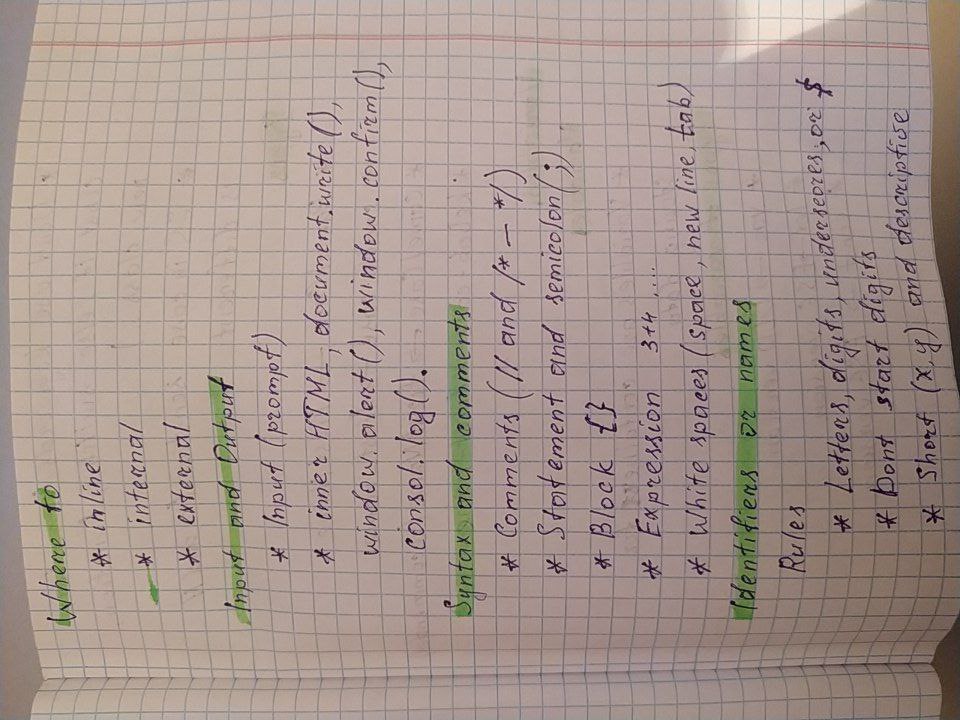 Where to
* inline
* internal
* external
Input and Output
* Input (prompt)
* inner HTML, document.write(),
window.alert(), window.confirm(),
Consol.log().
Syntax and comments
* Comments (// and /* — */)
* Statement and semicolon(;)
* Block {}
* Expression 3+4,...
* White spaces (space, new line, tab)
Identifiers or names
Rules
* Letters, digits, underscores, or $
* Dont start digits
* Short (x,y) and descriptive